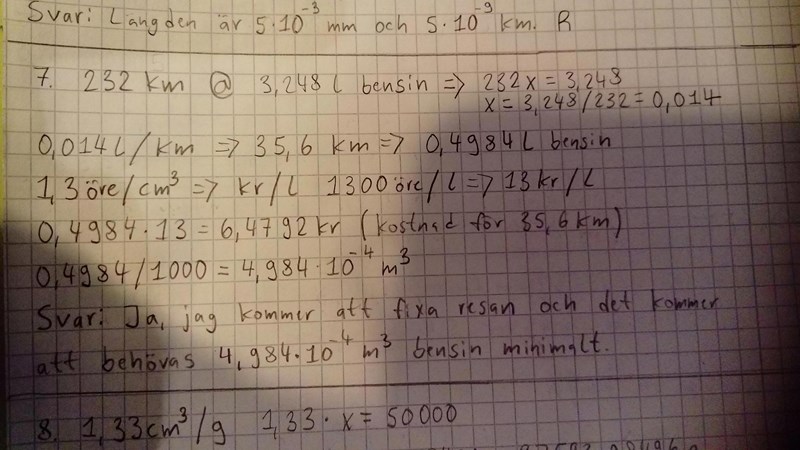 Svar: Längden är 5·10⁻³ mm och 5·10⁻⁹ km. R
7. 232 km @ 3,248 l bensin => 232x = 3,248
x = 3,248/232 = 0,014
0,014 l/km => 35,6 km => 0,4984 l bensin
1,3 öre/cm³ => kr/l 1300 öre/l => 13 kr/l
0,4984·13 = 6,4792 kr (kostnad för 35,6 km)
0,4984/1000 = 4,984·10⁻⁴ m³
Svar: Ja, jag kommer att fixa resan och det kommer
att behövas 4,984·10⁻⁴ m³ bensin minimalt.
8. 1,33 cm³/g 1,33·x = 50000